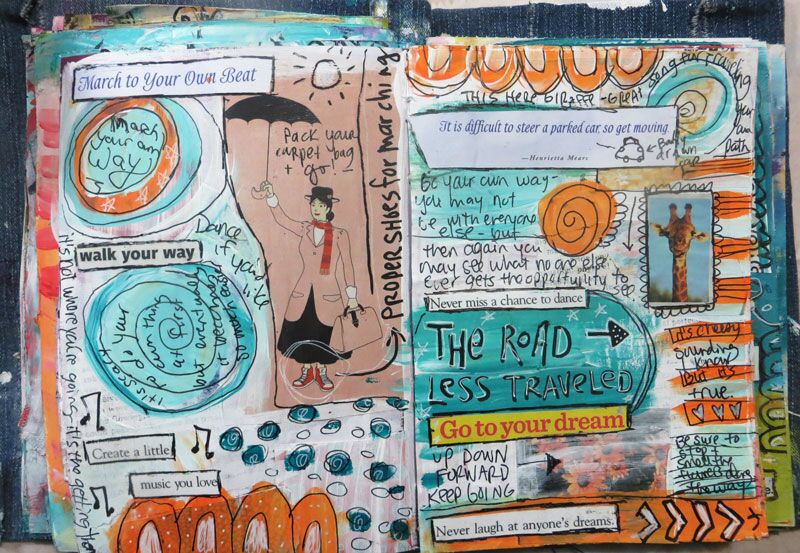 March to Your Own Beat
March
your own
way!
walk your way
Dance
if you'd
like
it is scary
to do your
own thing
at first
but eventually
it becomes
so much easier
it's not where you're going, it's the getting there
Create a little
music you love
Pack your
carpet bag
+ go!
PROPER SHOES for marching
THIS HERE GIRAFFE - GREAT
song for traveling
your
own
path
It is difficult to steer a parked car, so get moving.
—Henrietta Mears
Badly
drawn
car
Be your own way-
you may not
be with everyone
else - but
then again you
may see what no one else
Ever gets the opportunity to see
Never miss a chance to dance
THE ROAD
LESS TRAVELED
Go to your dream
UP DOWN
FORWARD
KEEP GOING
It's cheesy
sounding
I know
but it's
true.
Be sure to
stop +
smell the
flowers along
the way
Never laugh at anyone's dreams.